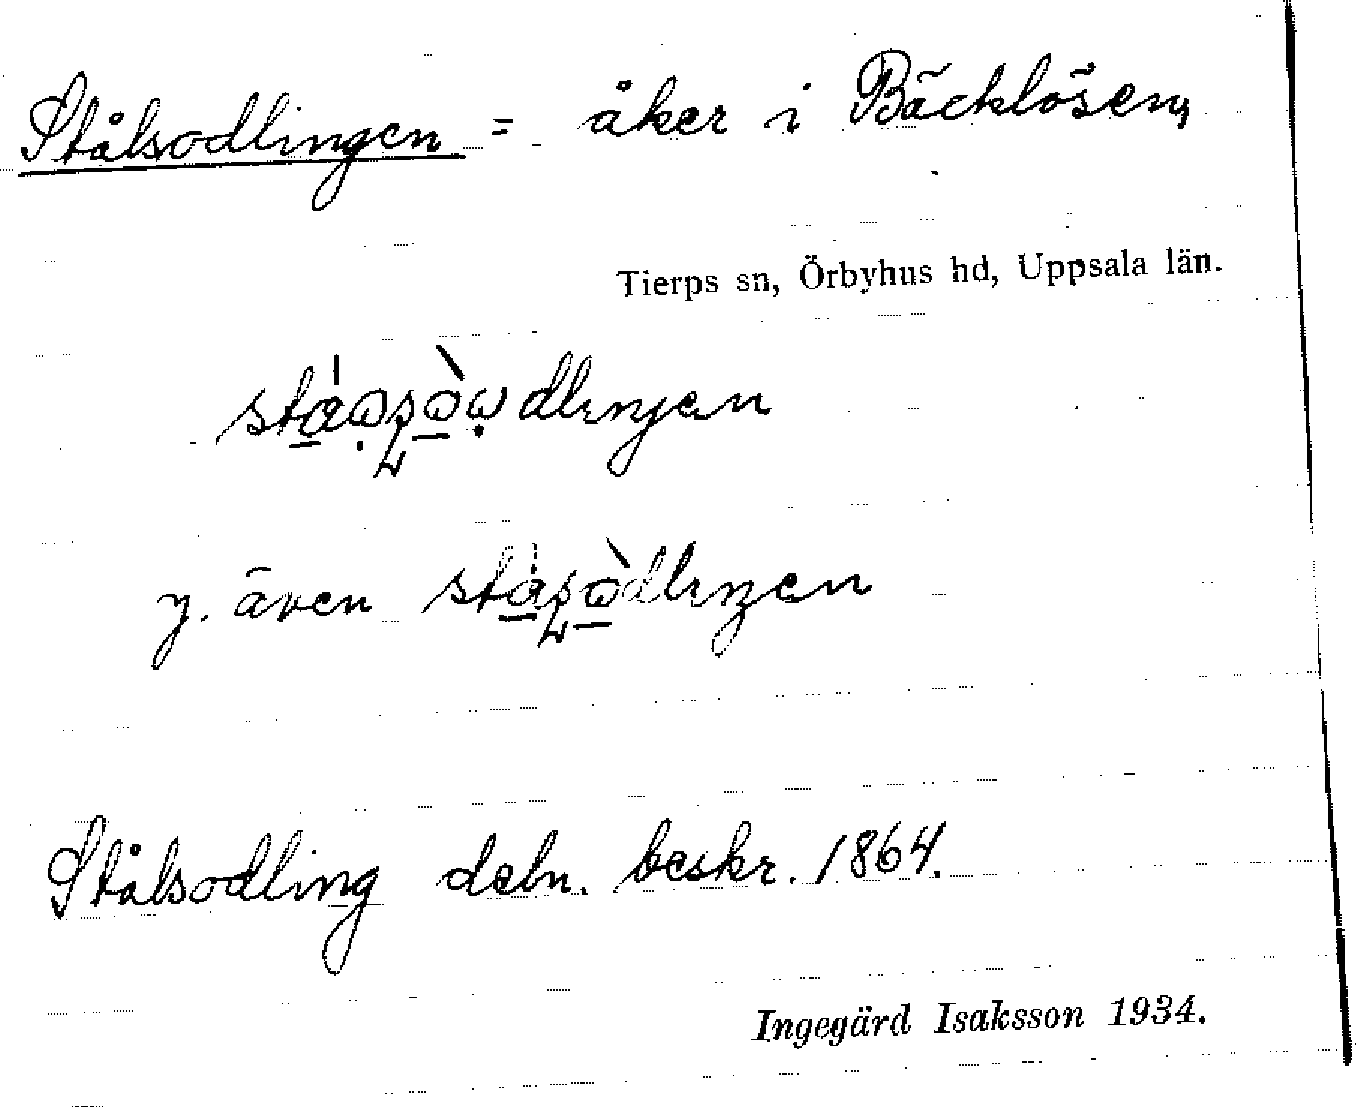 Stålsodlingen = åker i Bäcklösen,
Tierps sn, Örbyhus hd, Uppsala län.
y. även
Stålsodling deln. beskr. 1864.
Ingegärd Isaksson 1934.